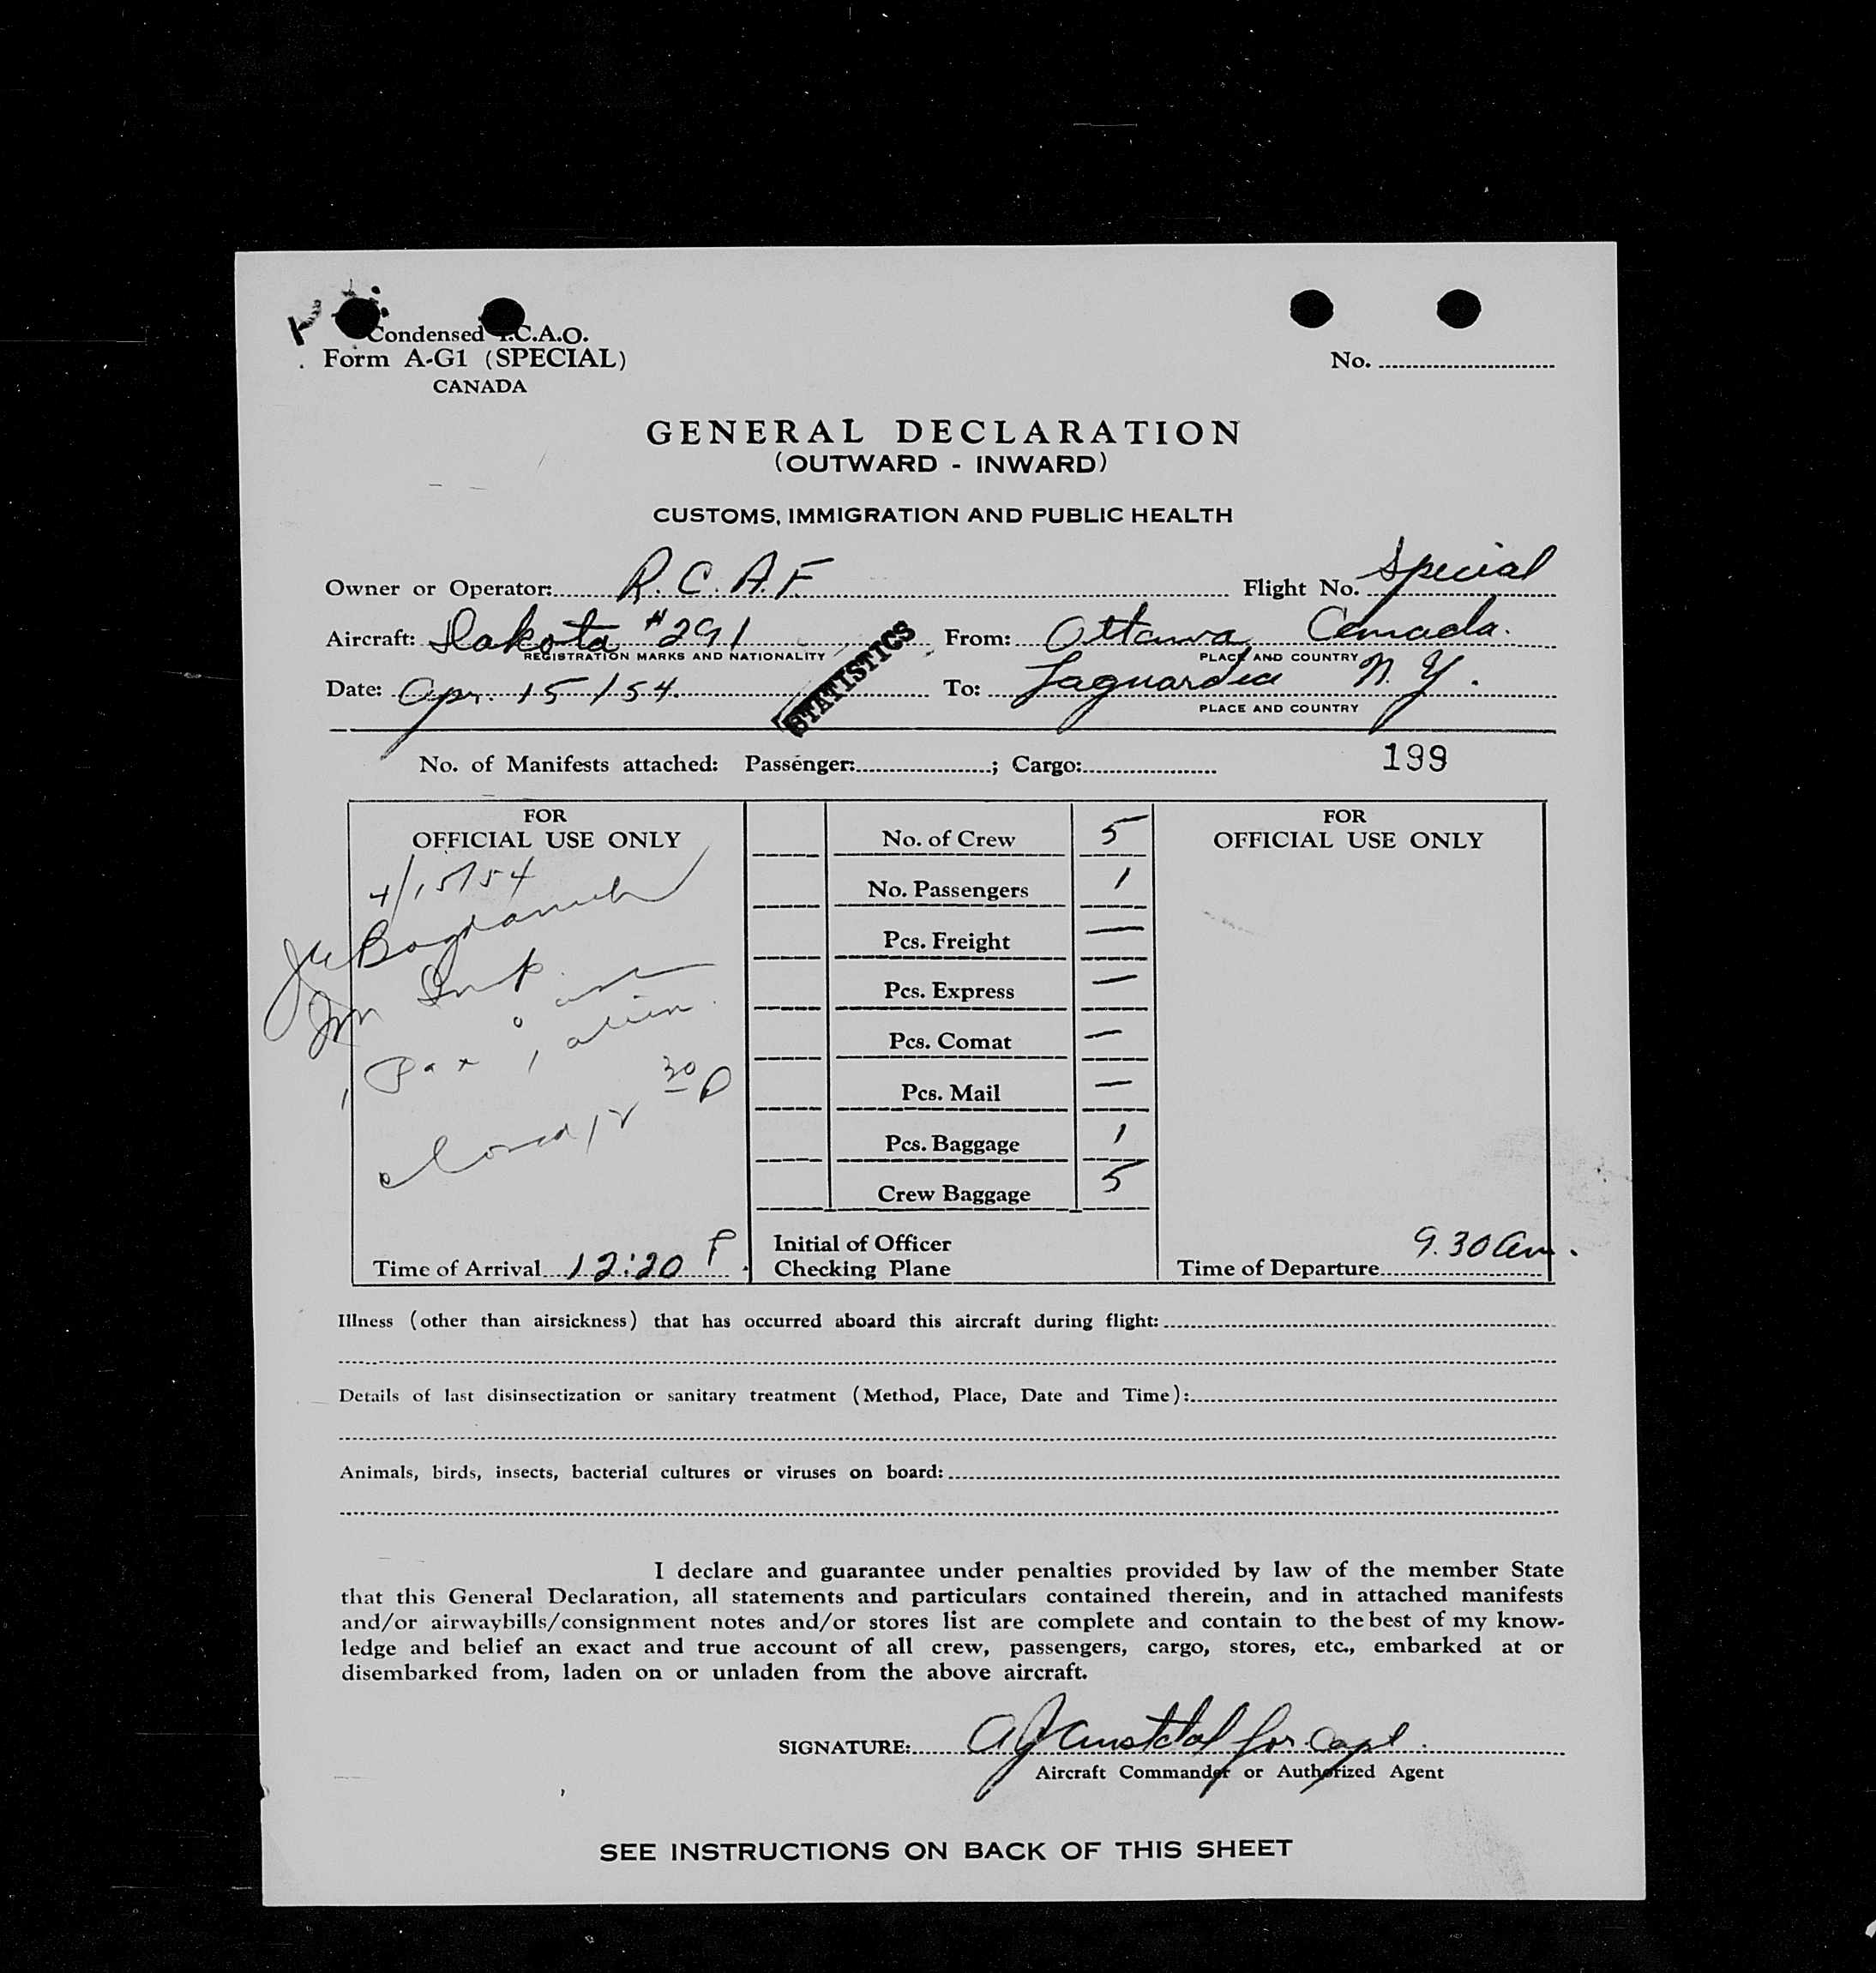 Condensed I.C.A.O.
Form A-G1 (SPECIAL)
CANADA
No.
GENERAL DECLARATION
(OUTWARD - INWARD)
CUSTOMS, IMMIGRATION AND PUBLIC HEALTH
Owner or Operator: R.C.A.F Flight No. Special
Aircraft: Dakota #291 From: Ottawa Canada.
REGISTRATION MARKS AND NATIONALITY PLACE AND COUNTRY
STATISTICS
Date: Apr. 15/54. To: Laguardia N.Y.
PLACE AND COUNTRY
No. of Manifests attached: Passenger: ; Cargo: 199
FOR
OFFICIAL USE ONLY
4/15/54
Imm Insp.
1 Pax 1 alien
closed 12 30 P
Time of Arrival 12:20 P
No. of Crew 5
No. Passengers 1
Pcs. Freight —
Pcs. Express —
Pcs. Comat —
Pcs. Mail —
Pcs. Baggage 1
Crew Baggage 5
Initial of Officer
Checking Plane
FOR
OFFICIAL USE ONLY
Time of Departure 9.30 am.
Illness (other than airsickness) that has occurred aboard this aircraft during flight:
Details of last disinsectization or sanitary treatment (Method, Place, Date and Time):
Animals, birds, insects, bacterial cultures or viruses on board:
I declare and guarantee under penalties provided by law of the member State
that this General Declaration, all statements and particulars contained therein, and in attached manifests
and/or airwaybills/consignment notes and/or stores list are complete and contain to the best of my know-
ledge and belief an exact and true account of all crew, passengers, cargo, stores, etc., embarked at or
disembarked from, laden on or unladen from the above aircraft.
SIGNATURE: for Capt.
Aircraft Commander or Authorized Agent
SEE INSTRUCTIONS ON BACK OF THIS SHEET